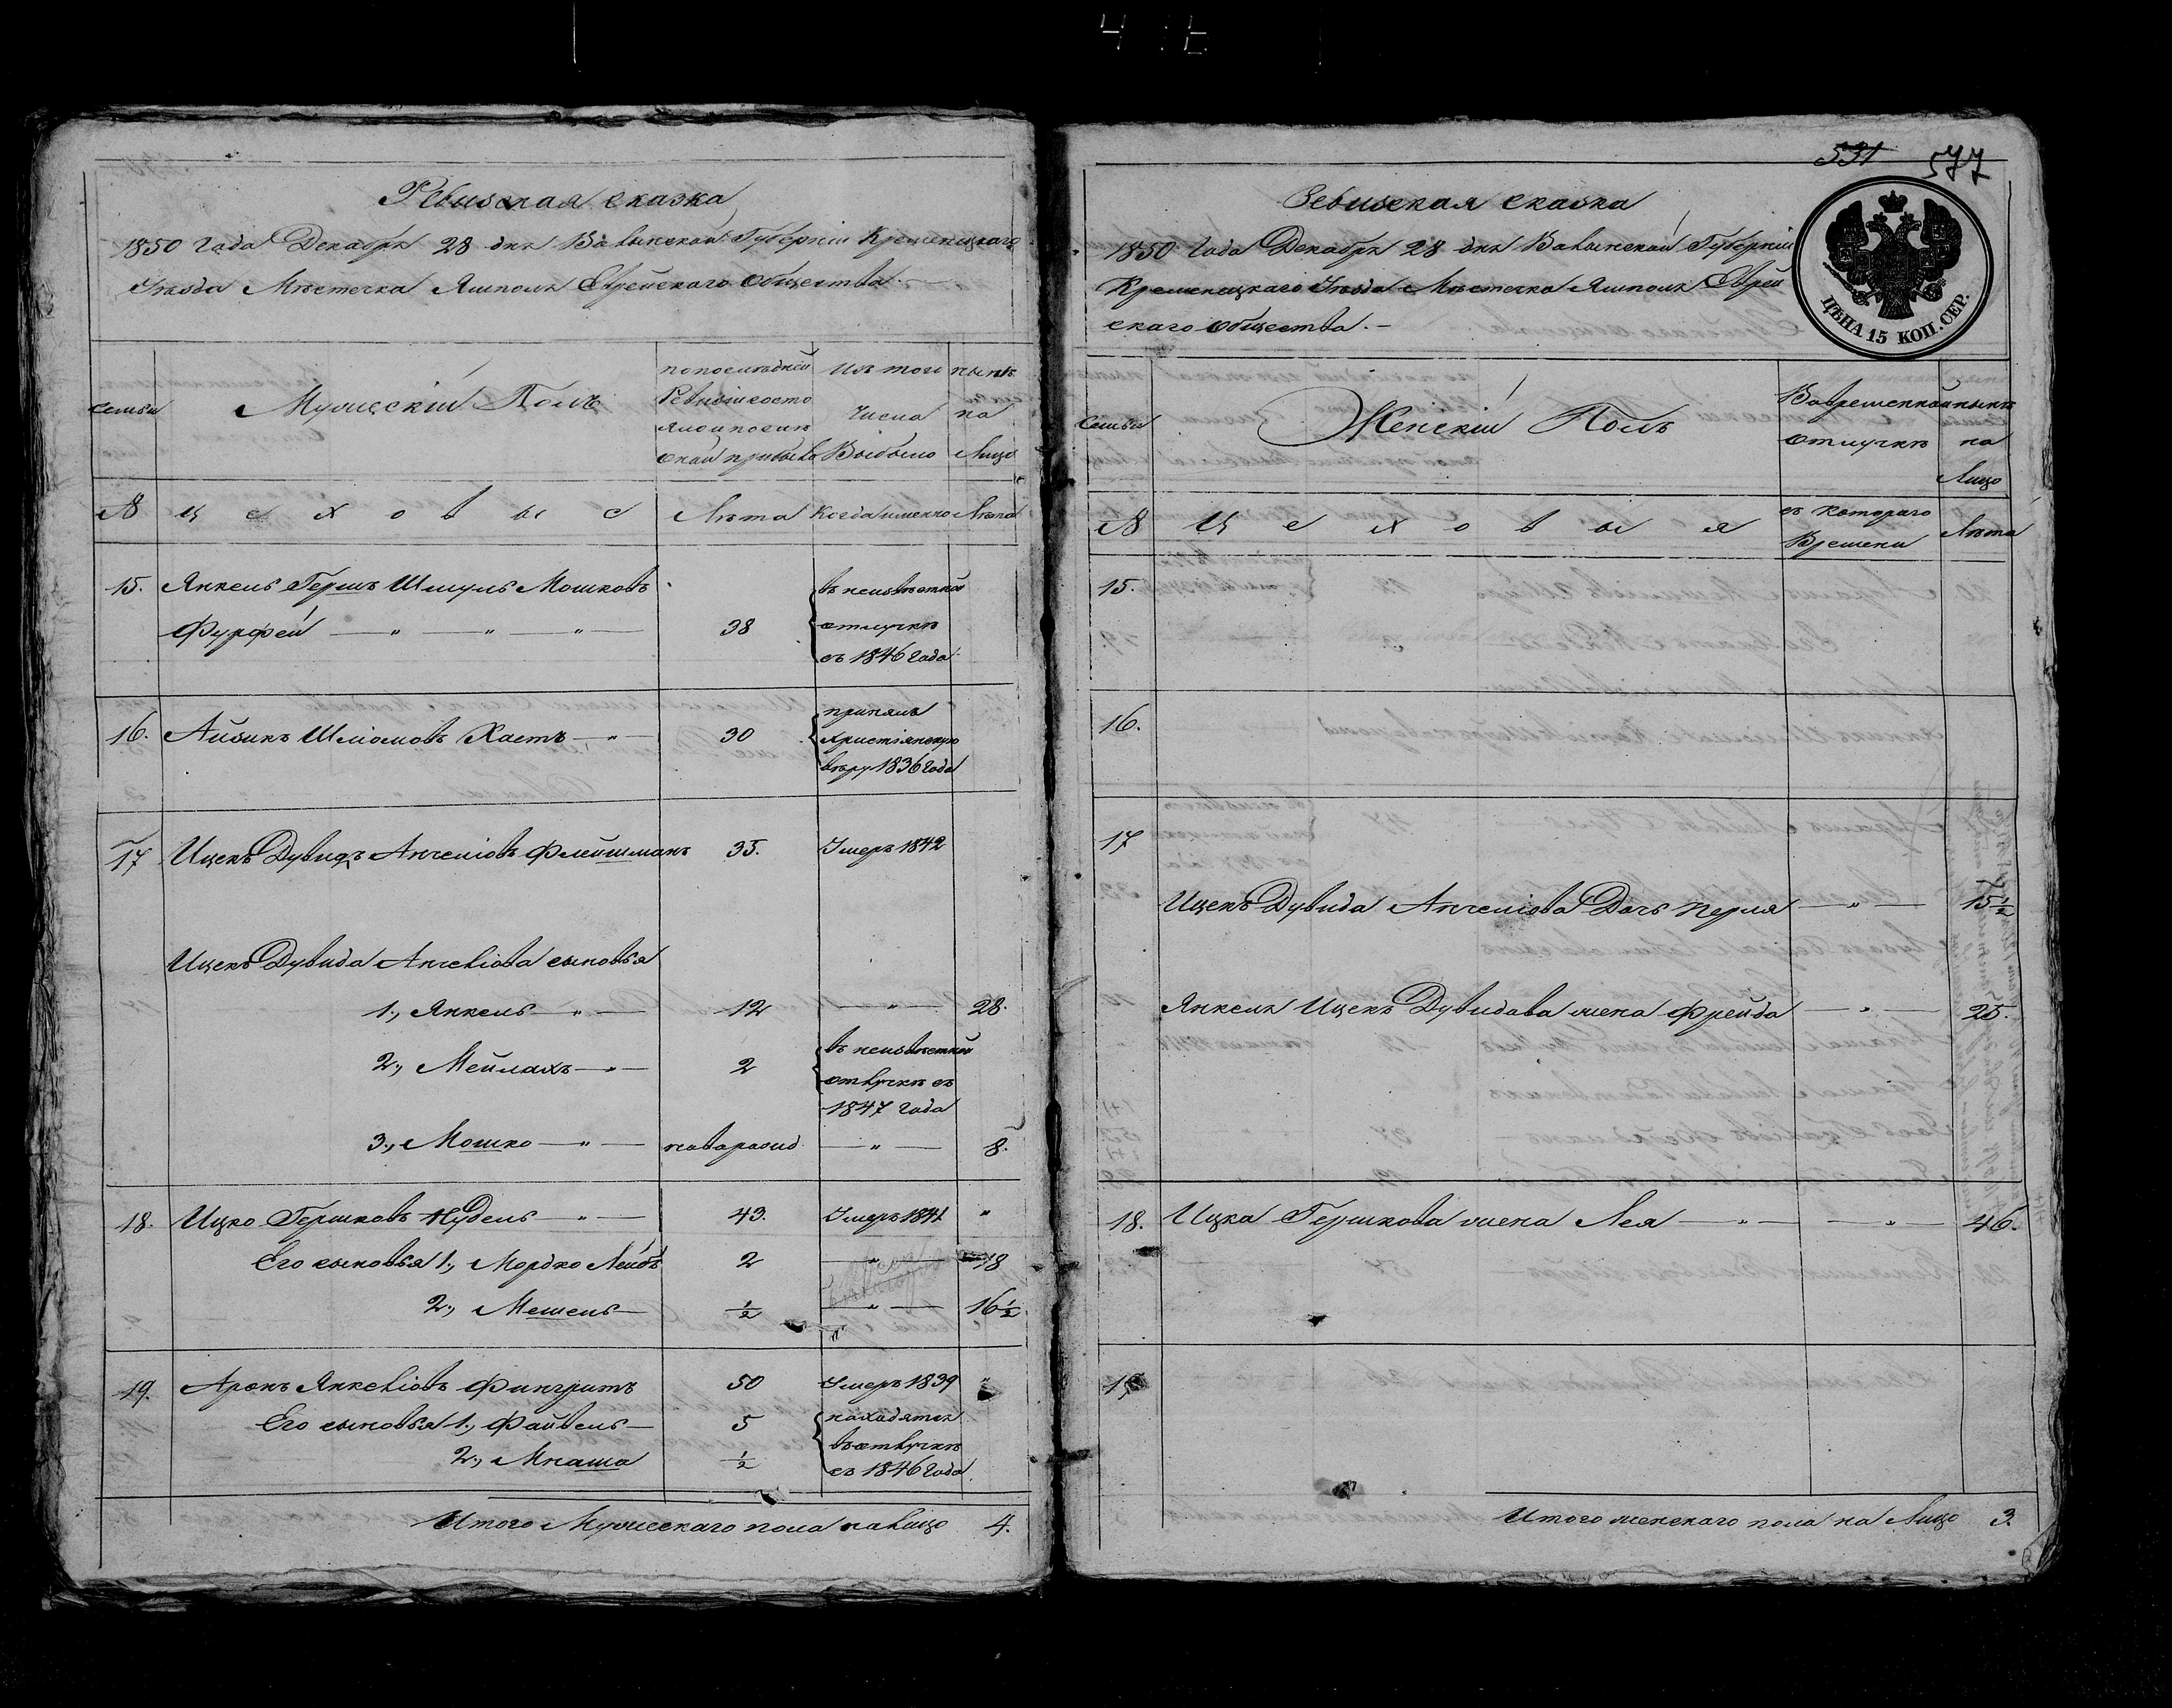 Ревизская сказка
1850 года Декабря 28 дня Волынской Губерніи Кременецкаго
Уезда Местечка Ямполя Еврейскаго Общества.
Семьи
Мужескій Полъ
по последней
Ревизіи состо
яло и после
оной прибыло
Изъ того
числа
Выбыло
ныне
на
Лицо
№
Цеховые
Лета
Когда именно
Лета
15. Янкель Гершъ Шмуль Мошковъ
Фурфей — " — " — " — 38
въ неизвестной
отлучке
съ 1846 года
16. Айзикъ Шліомовъ Хаетъ — " — 30
принялъ
христіянскую
веру 1836 года
17 Ицекъ Дувидъ Анчеліовъ Флейшманъ 35. Умеръ 1842
Ицекъ Дувида Анчеліова сыновья
1., Янкель — " — 12 — " — 28.
2., Мейлахъ — " — 2
въ неизвестной
отлучке съ
1847 года
3., Мошко — " — новорожд. — " — 8.
18. Ицко Гершковъ Нудель — " — 43. Умеръ 1841 "
Его сыновья 1., Мордко Лейбъ 2 — " — 18
2., Мешель — ½ — " — 16½
19. Аронъ Янкеліовъ Фингрутъ 50 Умеръ 1839 "
Его сыновья 1., Файвель — 5
2., Мнаша ½
находятся
въ отлучке
съ 1846 года.
Итого Мужескаго пола на лицо 4.
531 577
Ревизская сказка
1850 года Декабря 28 дня Волынской Губерніи
Кременецкаго Уезда Местечка Ямполя Еврей
скаго Общества. –
ЦѢНА 15 КОП. СЕР.
Семьи
Женскій Полъ
Во временной
отлучке
ныне
на
Лицо
№
Цеховыя
съ котораго
Времени
Лета
15.
16.
17
Ицекъ Дувида Анчеліова Дочь Перля — " — 15½
Янкеля Ицекъ Дувидова жена Фрейда — " — 25.
18. Ицка Гершкова жена Лея — " — " — 46.
19
Итого женскаго пола на Лицо 3.